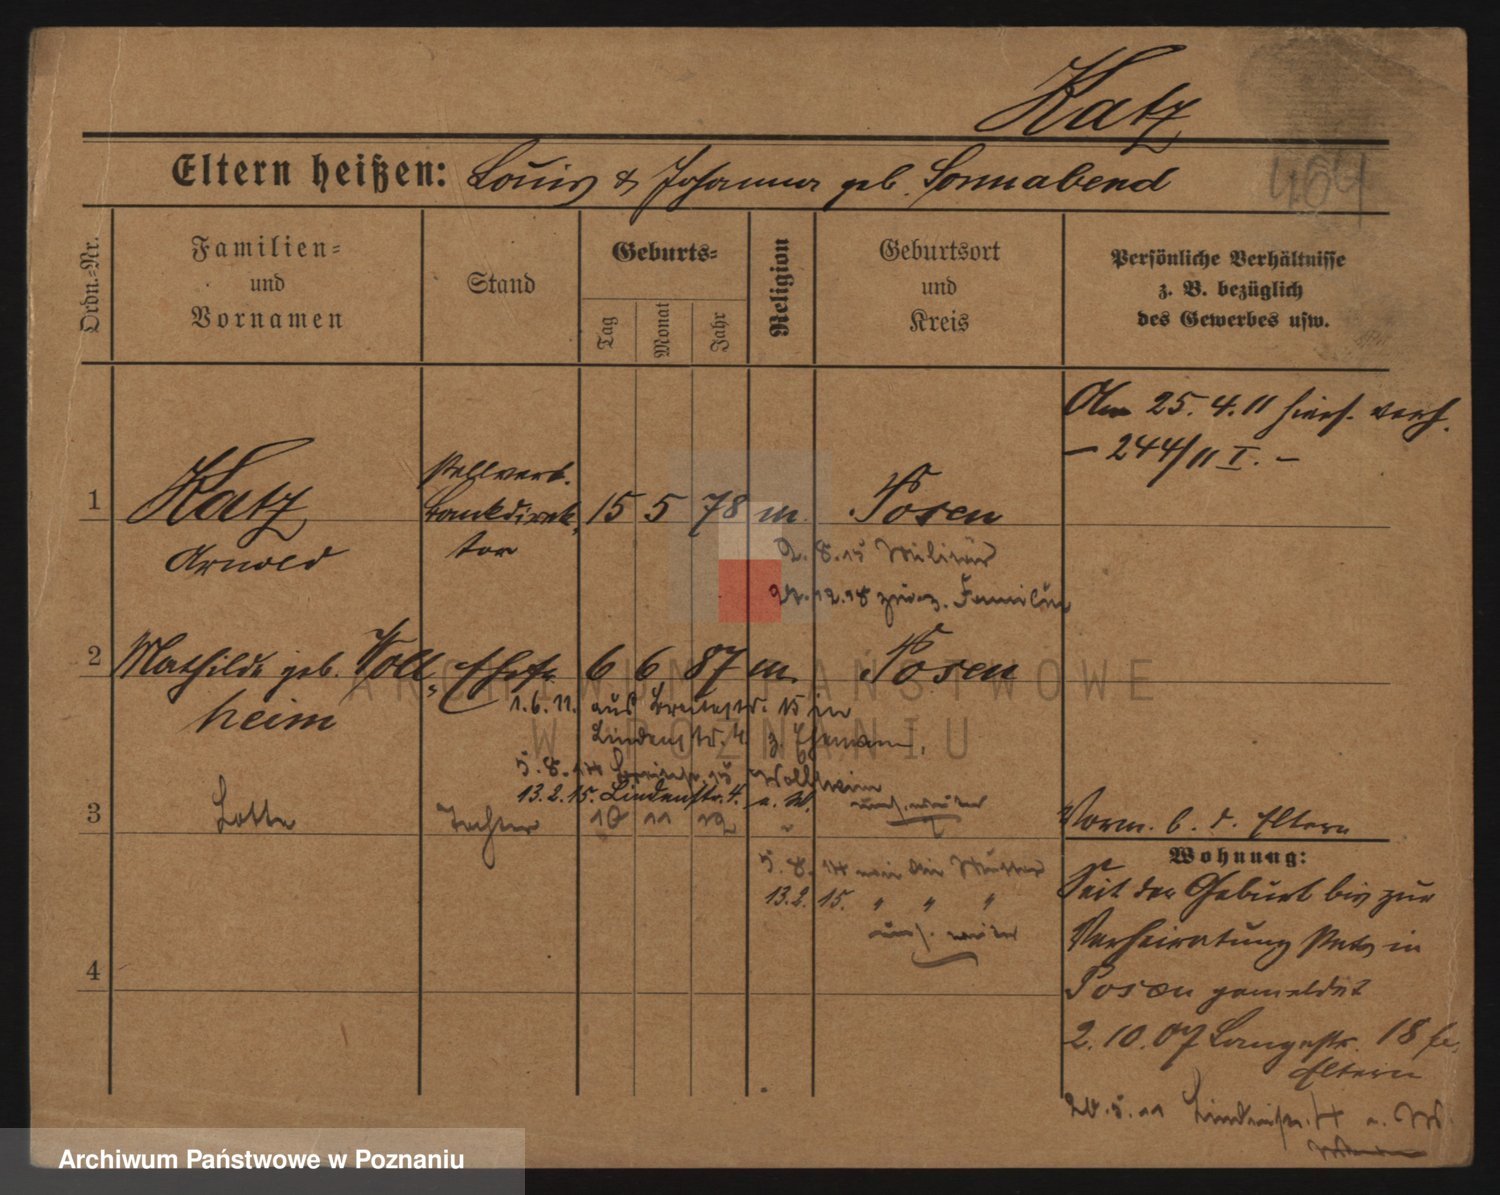 Katz
464
Eltern heißen: Louis & Johanna geb. Sonnabend
Ordn.-Nr.
Familien-
und
Vornamen
Stand
Geburts-
Tag
Monat
Jahr
Religion
Geburtsort
und
Kreis
Persönliche Verhältnisse
z. B. bezüglich
des Gewerbes usw.
Am 25.4.11 hierf. verh.
— 244/11 I. —
1 Katz stellvertr. Bankdirek- 15 5 78 m. Posen
Arnold tor
2.8.15 Militär
12.18 zur. z. Familie
2 Mathilde geb. Woll- Ehefr. 6 6 87 m. Posen
heim
1.6.11. aus Breitestr. 15 in
Lindenstr. 4 z. Ehemann,
5.8.14 Breitestr. 15 Wollheim
13.2.15. Lindenstr. 4. a. W.
3 Lotte Tochter 10 11 12 "
Vorm. b. d. Eltern
5.8.14 wie die Mutter
13.2.15. " " "
4
Wohnung:
Seit der Geburt bis zur
Verheiratung stets in
Posen gemeldet
2.10.07 Langestr. 18 be.
Eltern
5.11 Lindenstr. 4 a. W.
ARCHIWUM PAŃSTWOWE
W POZNANIU
Archiwum Państwowe w Poznaniu